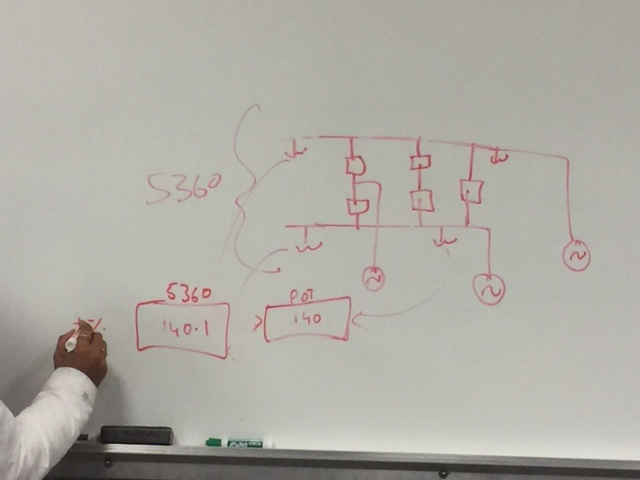 5360
5360
140.1
POT
140